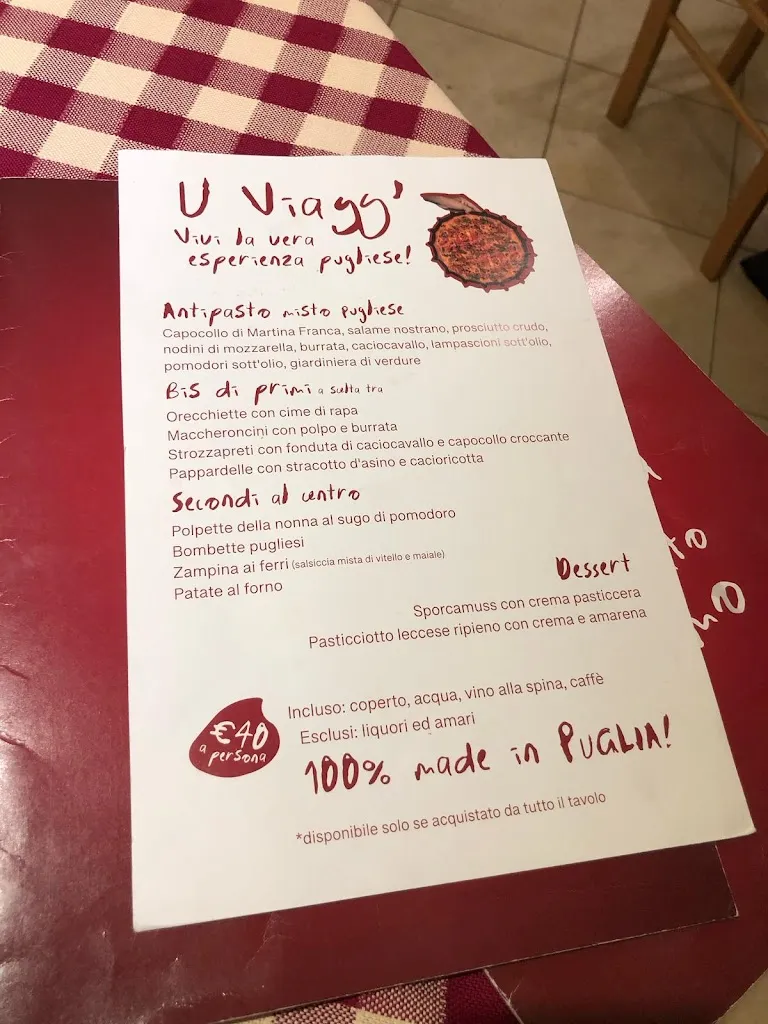 U Viagg'
Vivi la vera
esperienza pugliese!
Antipasto misto pugliese
Capocollo di Martina Franca, salame nostrano, prosciutto crudo,
nodini di mozzarella, burrata, caciocavallo, lampascioni sott'olio,
pomodori sott'olio, giardiniera di verdure
Bis di primi a scelta tra
Orecchiette con cime di rapa
Maccheroncini con polpo e burrata
Strozzapreti con fonduta di caciocavallo e capocollo croccante
Pappardelle con stracotto d'asino e cacioricotta
Secondi al centro
Polpette della nonna al sugo di pomodoro
Bombette pugliesi
Zampina ai ferri (salsiccia mista di vitello e maiale)
Patate al forno
Dessert
Sporcamuss con crema pasticcera
Pasticciotto leccese ripieno con crema e amarena
€40
a persona
Incluso: coperto, acqua, vino alla spina, caffè
Esclusi: liquori ed amari
100% made in PUGLIA!
*disponibile solo se acquistato da tutto il tavolo